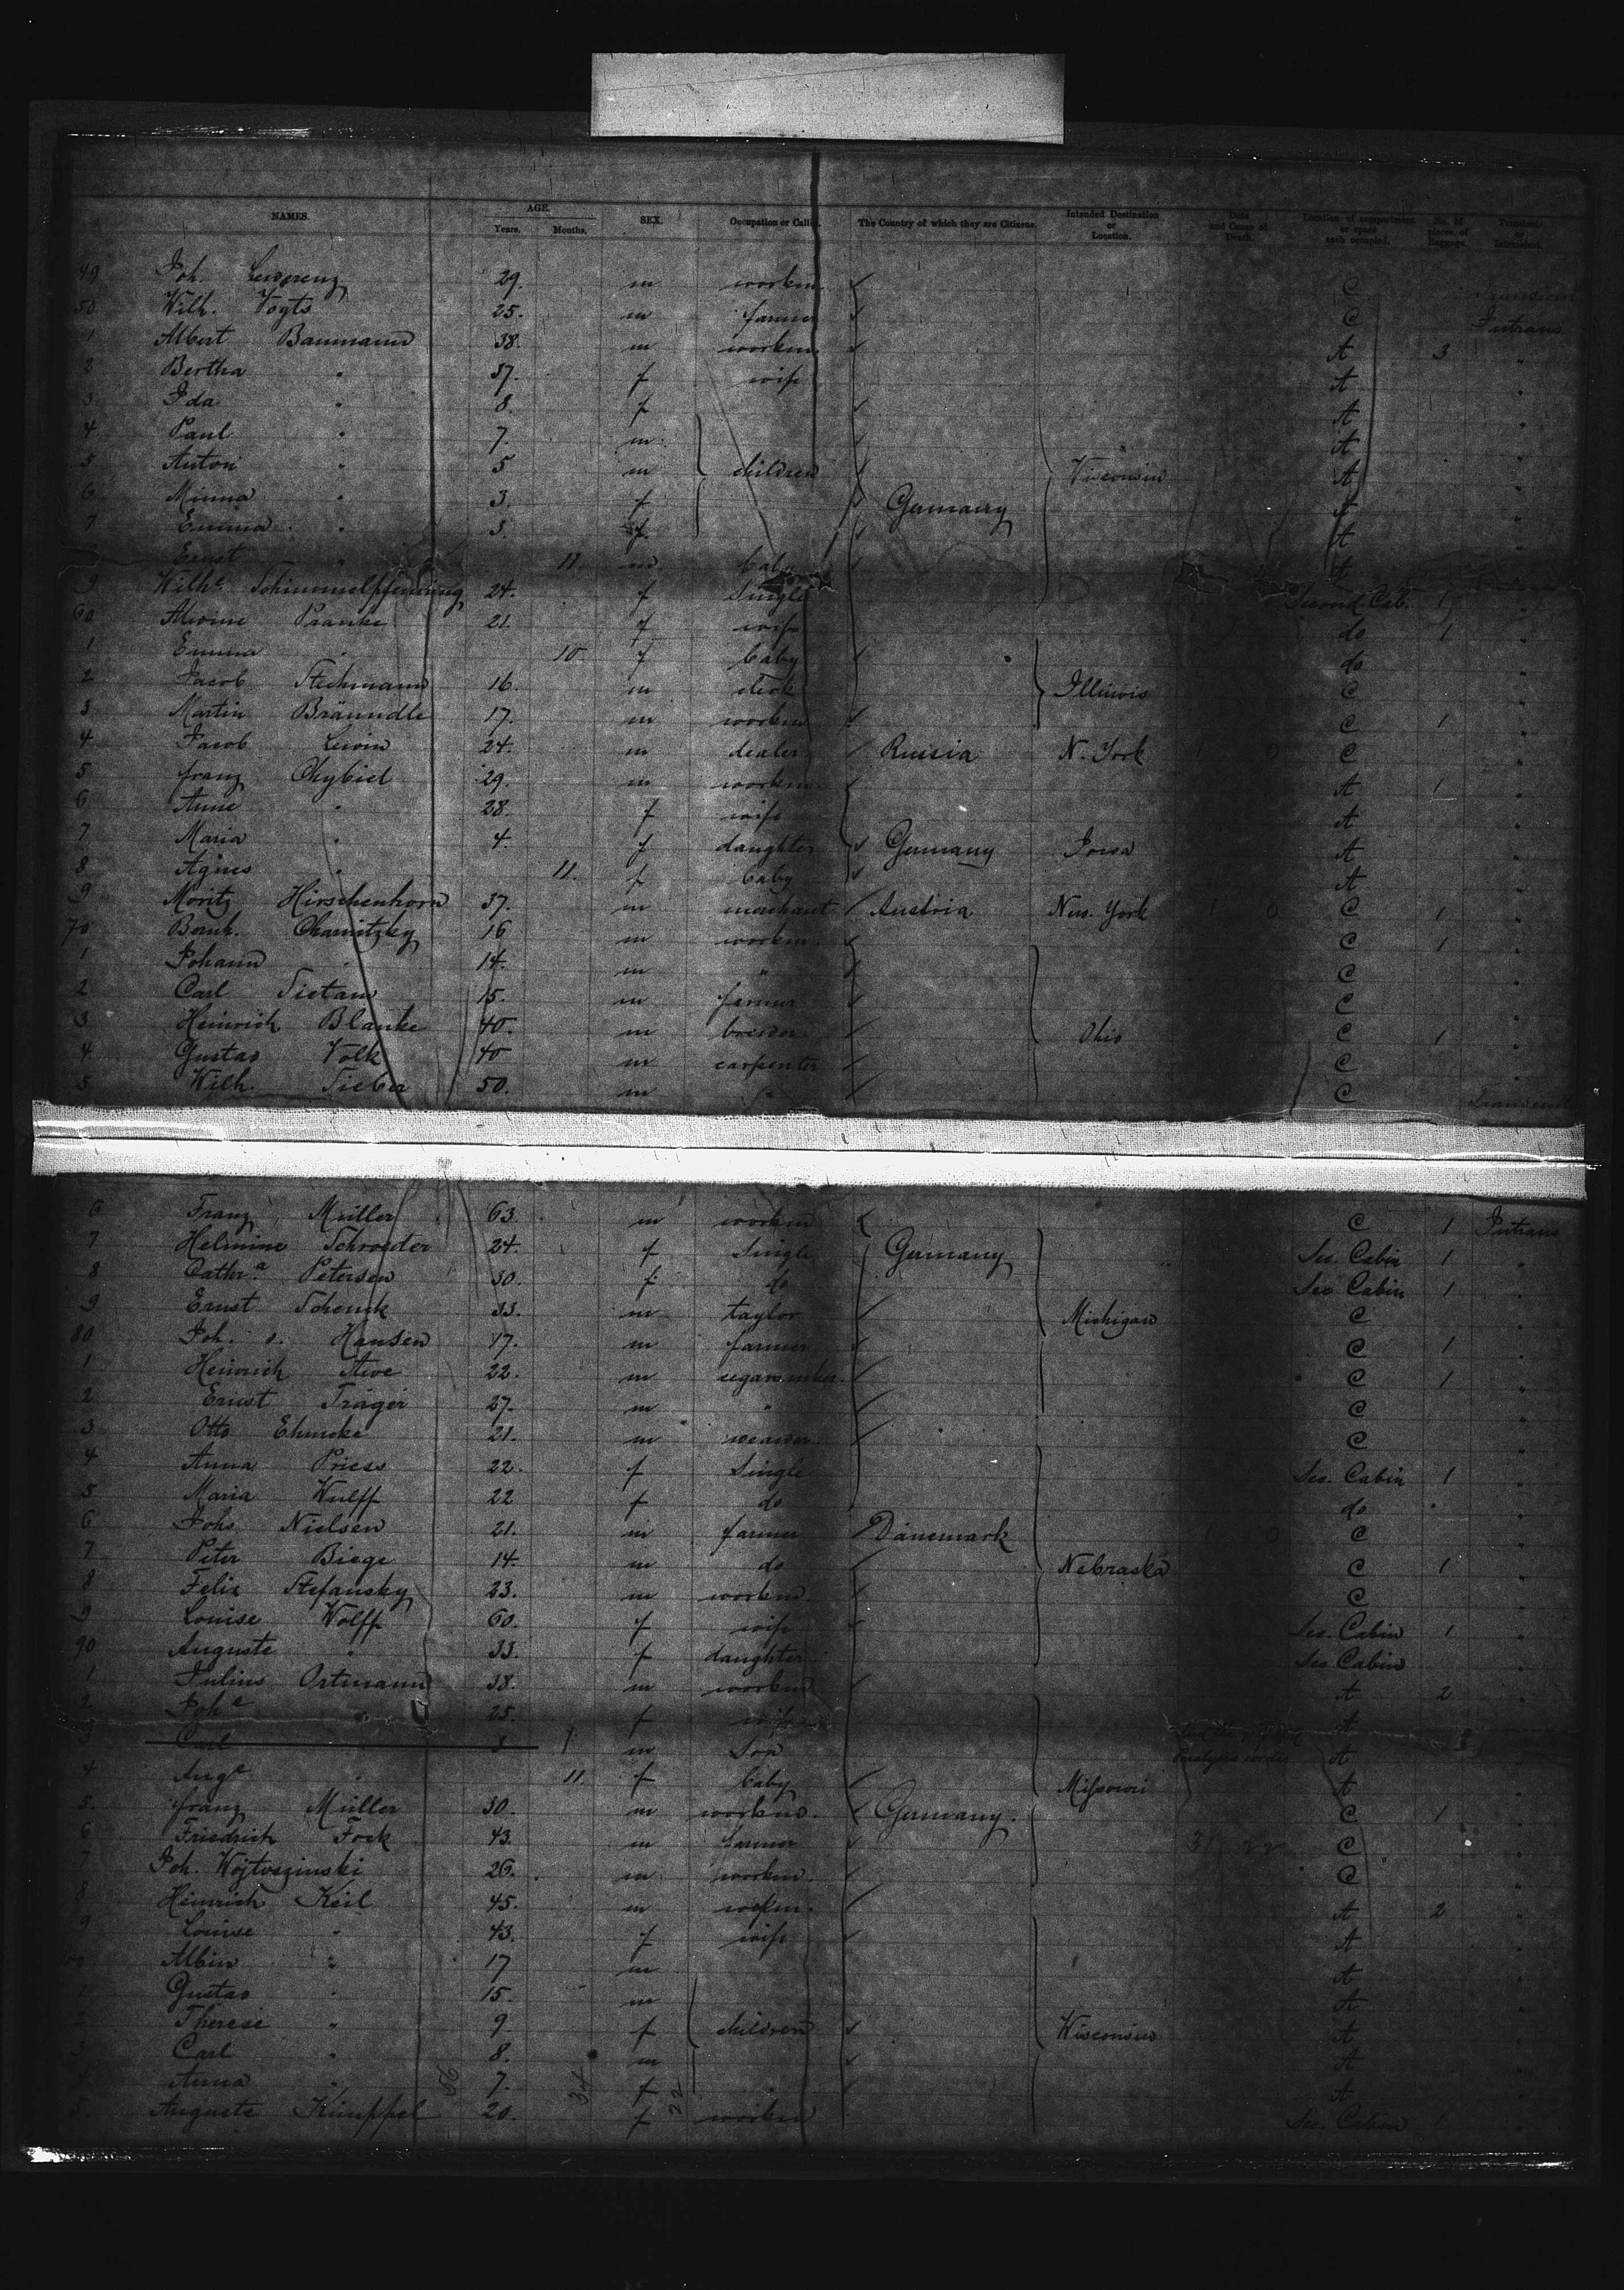 NAMES. AGE. Years. Months. SEX. Occupation or Calling The Country of which they are Citizens. Intended Destination or Location. Date and Cause of Death. Location of compartment or space each occupied. No. of pieces of Baggage. Transient or
49 Joh. 29. m workm C
50 Wilh. Vogts 25. m farmer C Intrans
1 Albert Baumann 38. m workm A 3 "
2 Bertha " 37. f wife A "
3 Ida " 8. f A "
4 Paul " 7. m A "
5 Anton " 5 m children Wisconsin A "
6 Minna " 3. f Germany A "
7 Emma " 3. f A "
Ernst " 11. m baby A "
9 Wilhe Schimmelpfennung 24. f Single Second Cab. 1 "
60 Alwine Pranke 21. f wife do 1 "
1 Emma " 10. f baby do "
2 Jacob Stechmann 16. m clerk Illinois C "
3 Martin Bräundle 17. m workm C 1 "
4 Jacob Lewin 24. m dealer Russia N. York C "
5 franz Chybiel 29. m workm A 1 "
6 Anne " 28. f wife A "
7 Maria " 4. f daughter Germany Iowa A "
8 Agnes " 11. f baby A "
9 Moritz Hirschenhorn 37. m merchant Austria New York C 1 "
70 Bernh. Charnitzky 16 m workm C 1 "
1 Johann " 14. m " C "
2 Carl Tietam 15. m farmer C "
3 Heinrich Blanke 40. m brewer Ohio C 1 "
4 Gustav Volk 40 m carpenter C "
5 Wilh. Sieber 50. m " C
6 Franz Müller 63. m workm C 1 Intrans
7 Helmine Schroeder 24. f Single Germany Sec. Cabin 1 "
8 Cathra Petersen 30. f do Sec Cabin 1 "
9 Ernst Schenk 33. m taylor Michigan C "
80 Joh. Hansen 47. m farmer C 1 "
1 Heinrich 22. m segarmaker C 1 "
2 Ernst Träger 27. m " C "
3 Otto Ehmcke 21. m weaver C "
4 Anna Priess 22. f Single Sec. Cabin 1 "
5 Maria Wulff 22 f do do "
6 Johs Nielsen 21. m farmer Dänemark C "
7 Peter Biege 14. m do Nebraska C 1 "
8 Felix Stefansky 23. m workm C "
9 Louise Wolff 60. f wife Sec. Cabin 1 "
90 Auguste " 33. f daughter Sec Cabin "
1 Julius Ortmann 38. m workm A 2 "
2 Johe 25. f wife A
3 Carl 3 m Son Paralysis cordis A "
4 Auge " 11. f baby Missouri A "
5. franz Müller 30. m workm. Germany. C 1 "
6 Friedrich Fock 43. m farmer C "
7 Joh. Wojtoszinski 26. m workm. C "
8 Heinrich Keil 45. m workm. A 2 "
9 Louise " 43. f wife A "
Albin " 17 m A "
1 Gustav " 15. m A "
2 Therese " 9 f children Wisconsin A "
3 Carl " 8. m A "
4 Anna " 7. f A "
5. Auguste Kimppel 20. f workm Sec. Cabin "
56 34 22